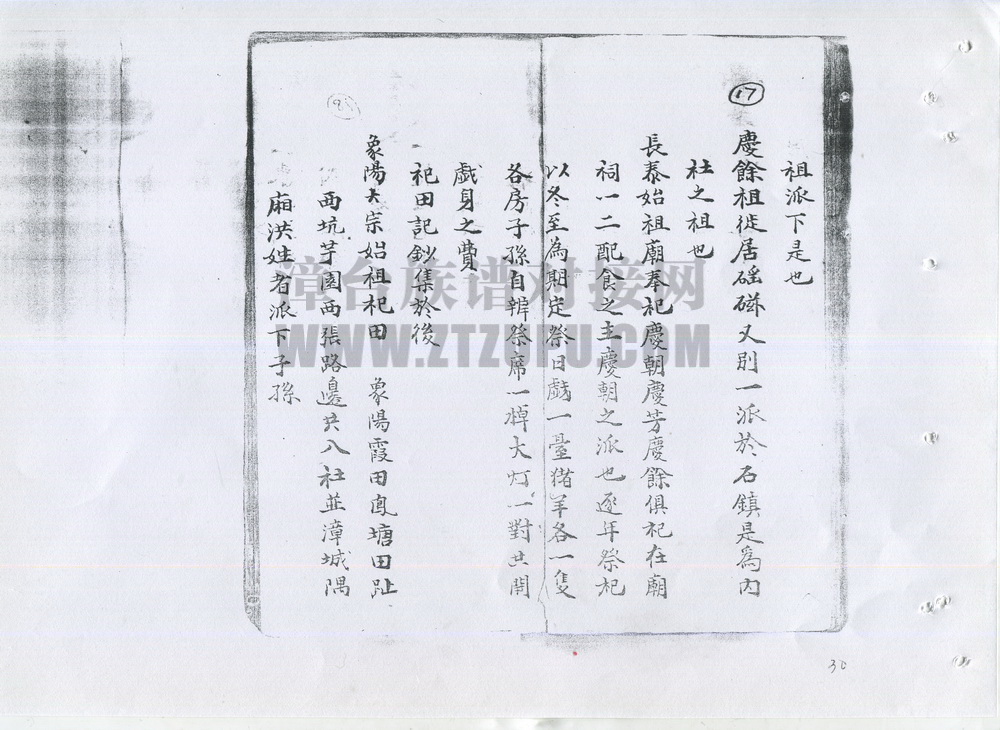 祖派下是也
17
慶餘祖徙居磘磁又別一派於石鎮是為內
社之祖也
長泰始祖廟奉祀慶朝慶芳慶餘俱祀在廟
祠一二配食之主慶朝之派也逐年祭祀
以冬至為期定祭日戯一臺猪羊各一隻
各房子孫自辦祭席一棹大灯一對共開
戯身之費
祀田記鈔集於後
9
象陽大宗始祖祀田 象陽霞田鳳塘田趾
西坑芋園西張路邊共八社並漳城隅
廂洪姓者派下子孫
漳台族谱对接网
WWW.ZTZUPU.COM
30